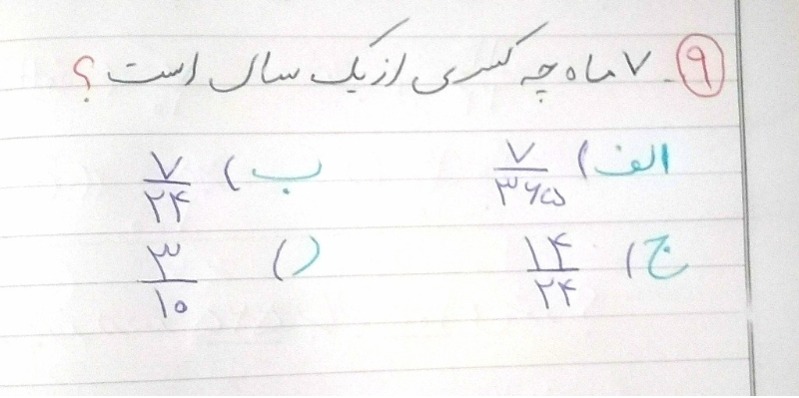 ۹. ۷ ماه چه کسری از یک سال است ؟
الف) ۷/۳۶۵ ب) ۷/۲۴
ج) ۱۴/۲۴ د) ۳/۱۰